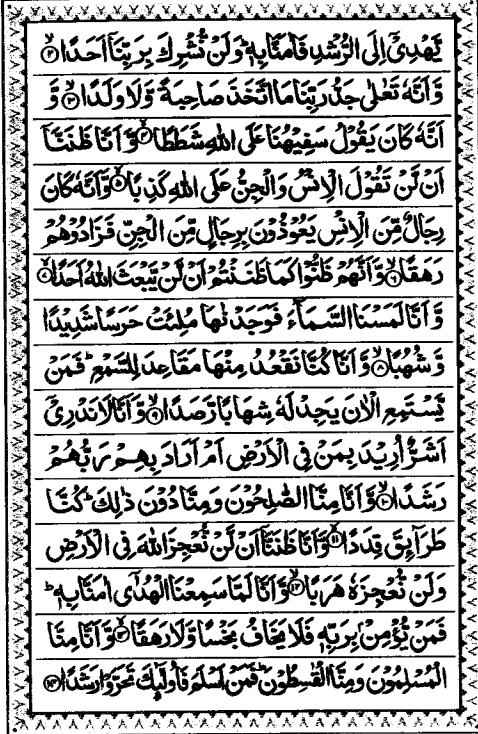 يَّهْدِىْٓ اِلَى الرُّشْدِ فَاٰمَنَّا بِهٖ ؕ وَلَنْ نُّشْرِكَ بِرَبِّنَاۤ اَحَدًا ۙ‏﴿۲﴾
وَّاَنَّهٗ تَعٰلٰى جَدُّ رَبِّنَا مَا اتَّخَذَ صَاحِبَةً وَّلَا وَلَدًا ۙ‏﴿۳﴾ وَّ
اَنَّهٗ كَانَ يَقُوْلُ سَفِيْهُنَا عَلَى اللّٰهِ شَطَطًا ۙ‏﴿۴﴾ وَّاَنَّا ظَنَنَّاۤ
اَنْ لَّنْ تَقُوْلَ الْاِنْسُ وَالْجِنُّ عَلَى اللّٰهِ كَذِبًا ۙ‏﴿۵﴾ وَّاَنَّهٗ كَانَ
رِجَالٌ مِّنَ الْاِنْسِ يَعُوْذُوْنَ بِرِجَالٍ مِّنَ الْجِنِّ فَزَادُوْهُمْ
رَهَقًا ۙ‏﴿۶﴾ وَّاَنَّهُمْ ظَنُّوْا كَمَا ظَنَنْتُمْ اَنْ لَّنْ يَّبْعَثَ اللّٰهُ اَحَدًا ۙ‏﴿۷﴾
وَّاَنَّا لَمَسْنَا السَّمَآءَ فَوَجَدْنٰهَا مُلِئَتْ حَرَسًا شَدِيْدًا
وَّشُهُبًا ۙ‏﴿۸﴾ وَّاَنَّا كُنَّا نَقْعُدُ مِنْهَا مَقَاعِدَ لِلسَّمْعِ ؕ فَمَنْ
يَّسْتَمِعِ الْاٰنَ يَجِدْ لَهٗ شِهَابًا رَّصَدًا ۙ‏﴿۹﴾ وَّاَنَّا لَا نَدْرِىْۤ
اَشَرٌّ اُرِيْدَ بِمَنْ فِى الْاَرْضِ اَمْ اَرَادَ بِهِمْ رَبُّهُمْ
رَشَدًا ۙ‏﴿۱۰﴾ وَّاَنَّا مِنَّا الصّٰلِحُوْنَ وَمِنَّا دُوْنَ ذٰلِكَ ؕ كُنَّا
طَرَآئِقَ قِدَدًا ۙ‏﴿۱۱﴾ وَّاَنَّا ظَنَنَّاۤ اَنْ لَّنْ نُّعْجِزَ اللّٰهَ فِى الْاَرْضِ
وَلَنْ نُّعْجِزَهٗ هَرَبًا ۙ‏﴿۱۲﴾ وَّاَنَّا لَمَّا سَمِعْنَا الْهُدٰٓى اٰمَنَّا بِهٖ ؕ
فَمَنْ يُّؤْمِنْۢ بِرَبِّهٖ فَلَا يَخَافُ بَخْسًا وَّلَا رَهَقًا ۙ‏﴿۱۳﴾ وَّاَنَّا مِنَّا
الْمُسْلِمُوْنَ وَمِنَّا الْقٰسِطُوْنَ ؕ فَمَنْ اَسْلَمَ فَاُولٰٓئِكَ تَحَرَّوْا رَشَدًا ‏﴿۱۴﴾